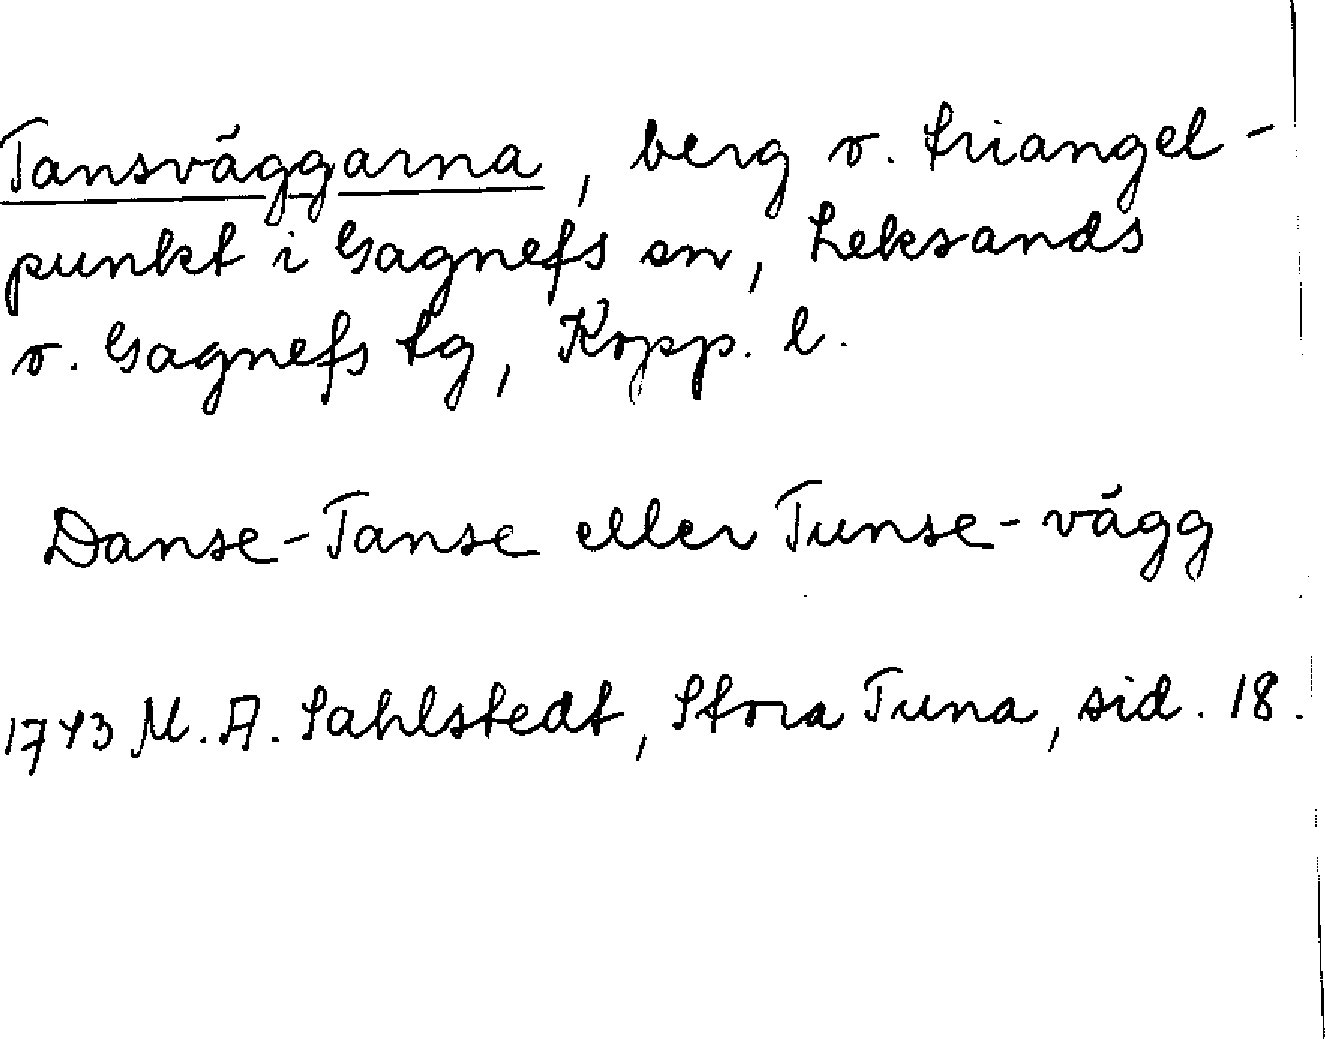 Tansväggarna, berg o. triangel-
punkt i Gagnefs sn, Leksands
o. Gagnefs tg, Kopp. l.
Danse-Tanse eller Tunse-vägg
1743 M. A. Sahlstedt, Stora Tuna, sid. 18.